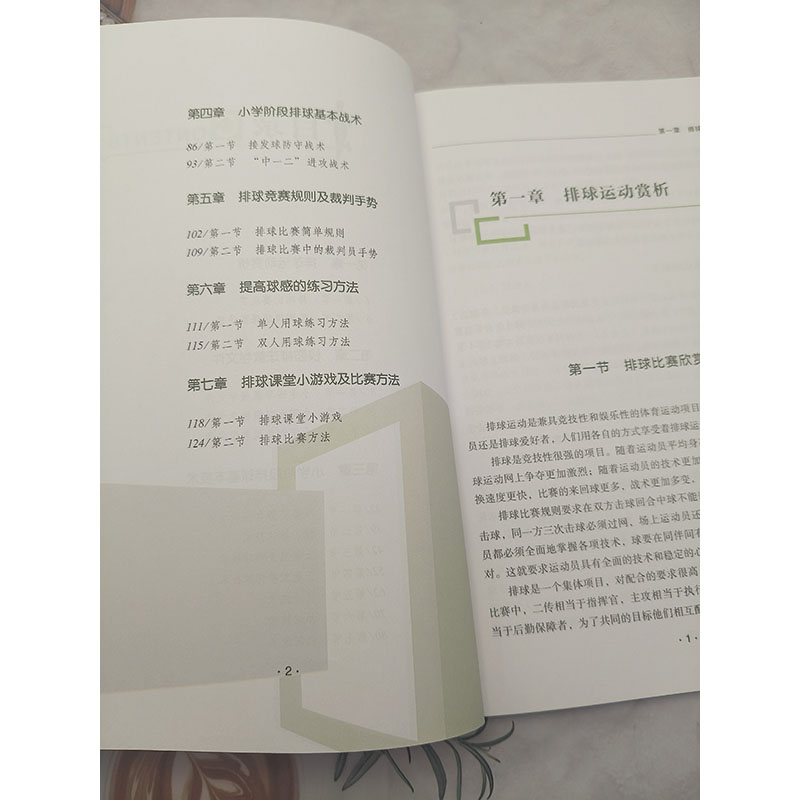 第四章 小学阶段排球基本战术
86/第一节 接发球防守战术
93/第二节 “中一二”进攻战术
第五章 排球竞赛规则及裁判手势
102/第一节 排球比赛简单规则
109/第二节 排球比赛中的裁判员手势
第六章 提高球感的练习方法
111/第一节 单人用球练习方法
115/第二节 双人用球练习方法
第七章 排球课堂小游戏及比赛方法
118/第一节 排球课堂小游戏
124/第二节 排球比赛方法
·2·
第一章 排球
第一章 排球运动赏析
第一节 排球比赛欣赏
排球运动是兼具竞技性和娱乐性的体育运动项目
员还是排球爱好者，人们用各自的方式享受着排球运
排球是竞技性很强的项目。随着运动员平均身
球运动网上争夺更加激烈；随着运动员的技术更加
换速度更快，比赛的来回球更多，战术更加多变，
排球比赛规则要求在双方击球回合中球不能
击球，同一方三次击球必须过网，场上运动员还
员都必须全面地掌握各项技术，球要在同伴间有
对。这就要求运动员具有全面的技术和稳定的心
排球是一个集体项目，对配合的要求很高
比赛中，二传相当于指挥官，主攻相当于执行
当于后勤保障者，为了共同的目标他们相互配
·1·